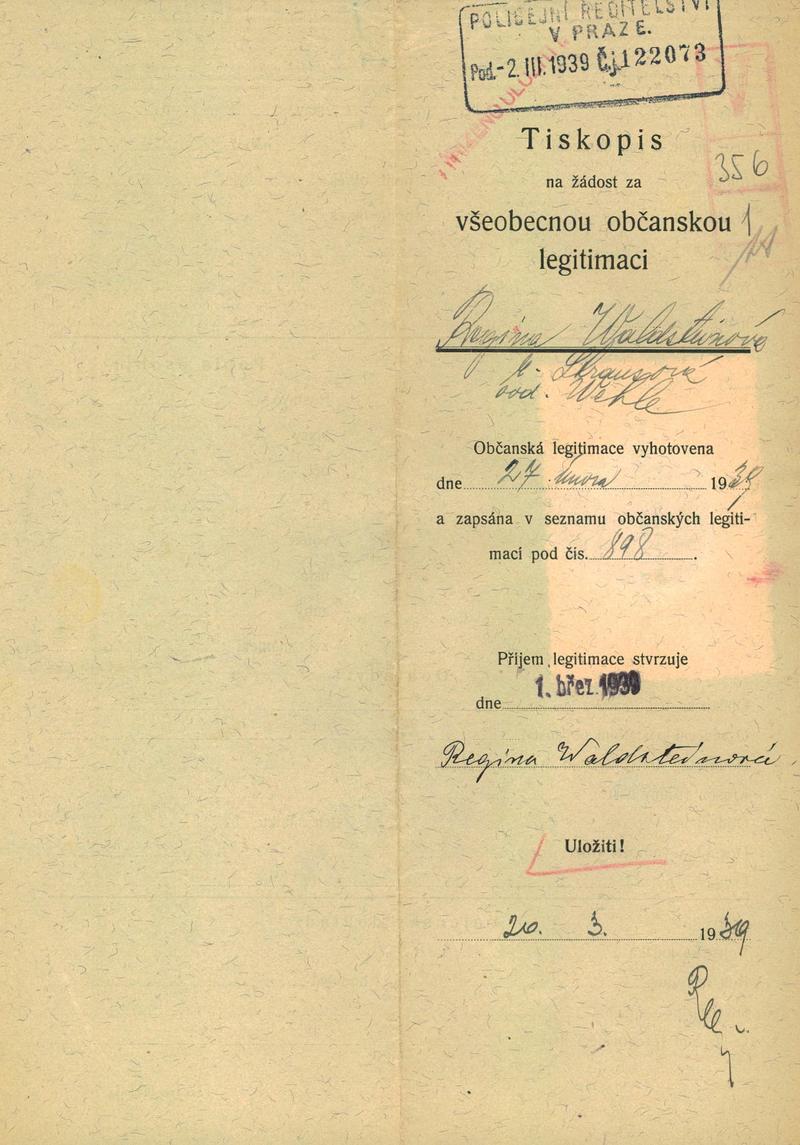 POLICEJNÍ ŘEDITELSTVÍ
V PRAZE.
Pod. -2.III.1939 Č.j. 122073
Tiskopis
356
na žádost za
všeobecnou občanskou 1
legitimaci
Regina Waldsteinová
r. Strausová
ovd. Wehle
Občanská legitimace vyhotovena
dne 27. února 1939
a zapsána v seznamu občanských legiti-
mací pod čís. 898.
Příjem legitimace stvrzuje
dne 1. břez. 1939
Regina Waldsteinová
Uložiti!
20. 3. 1939